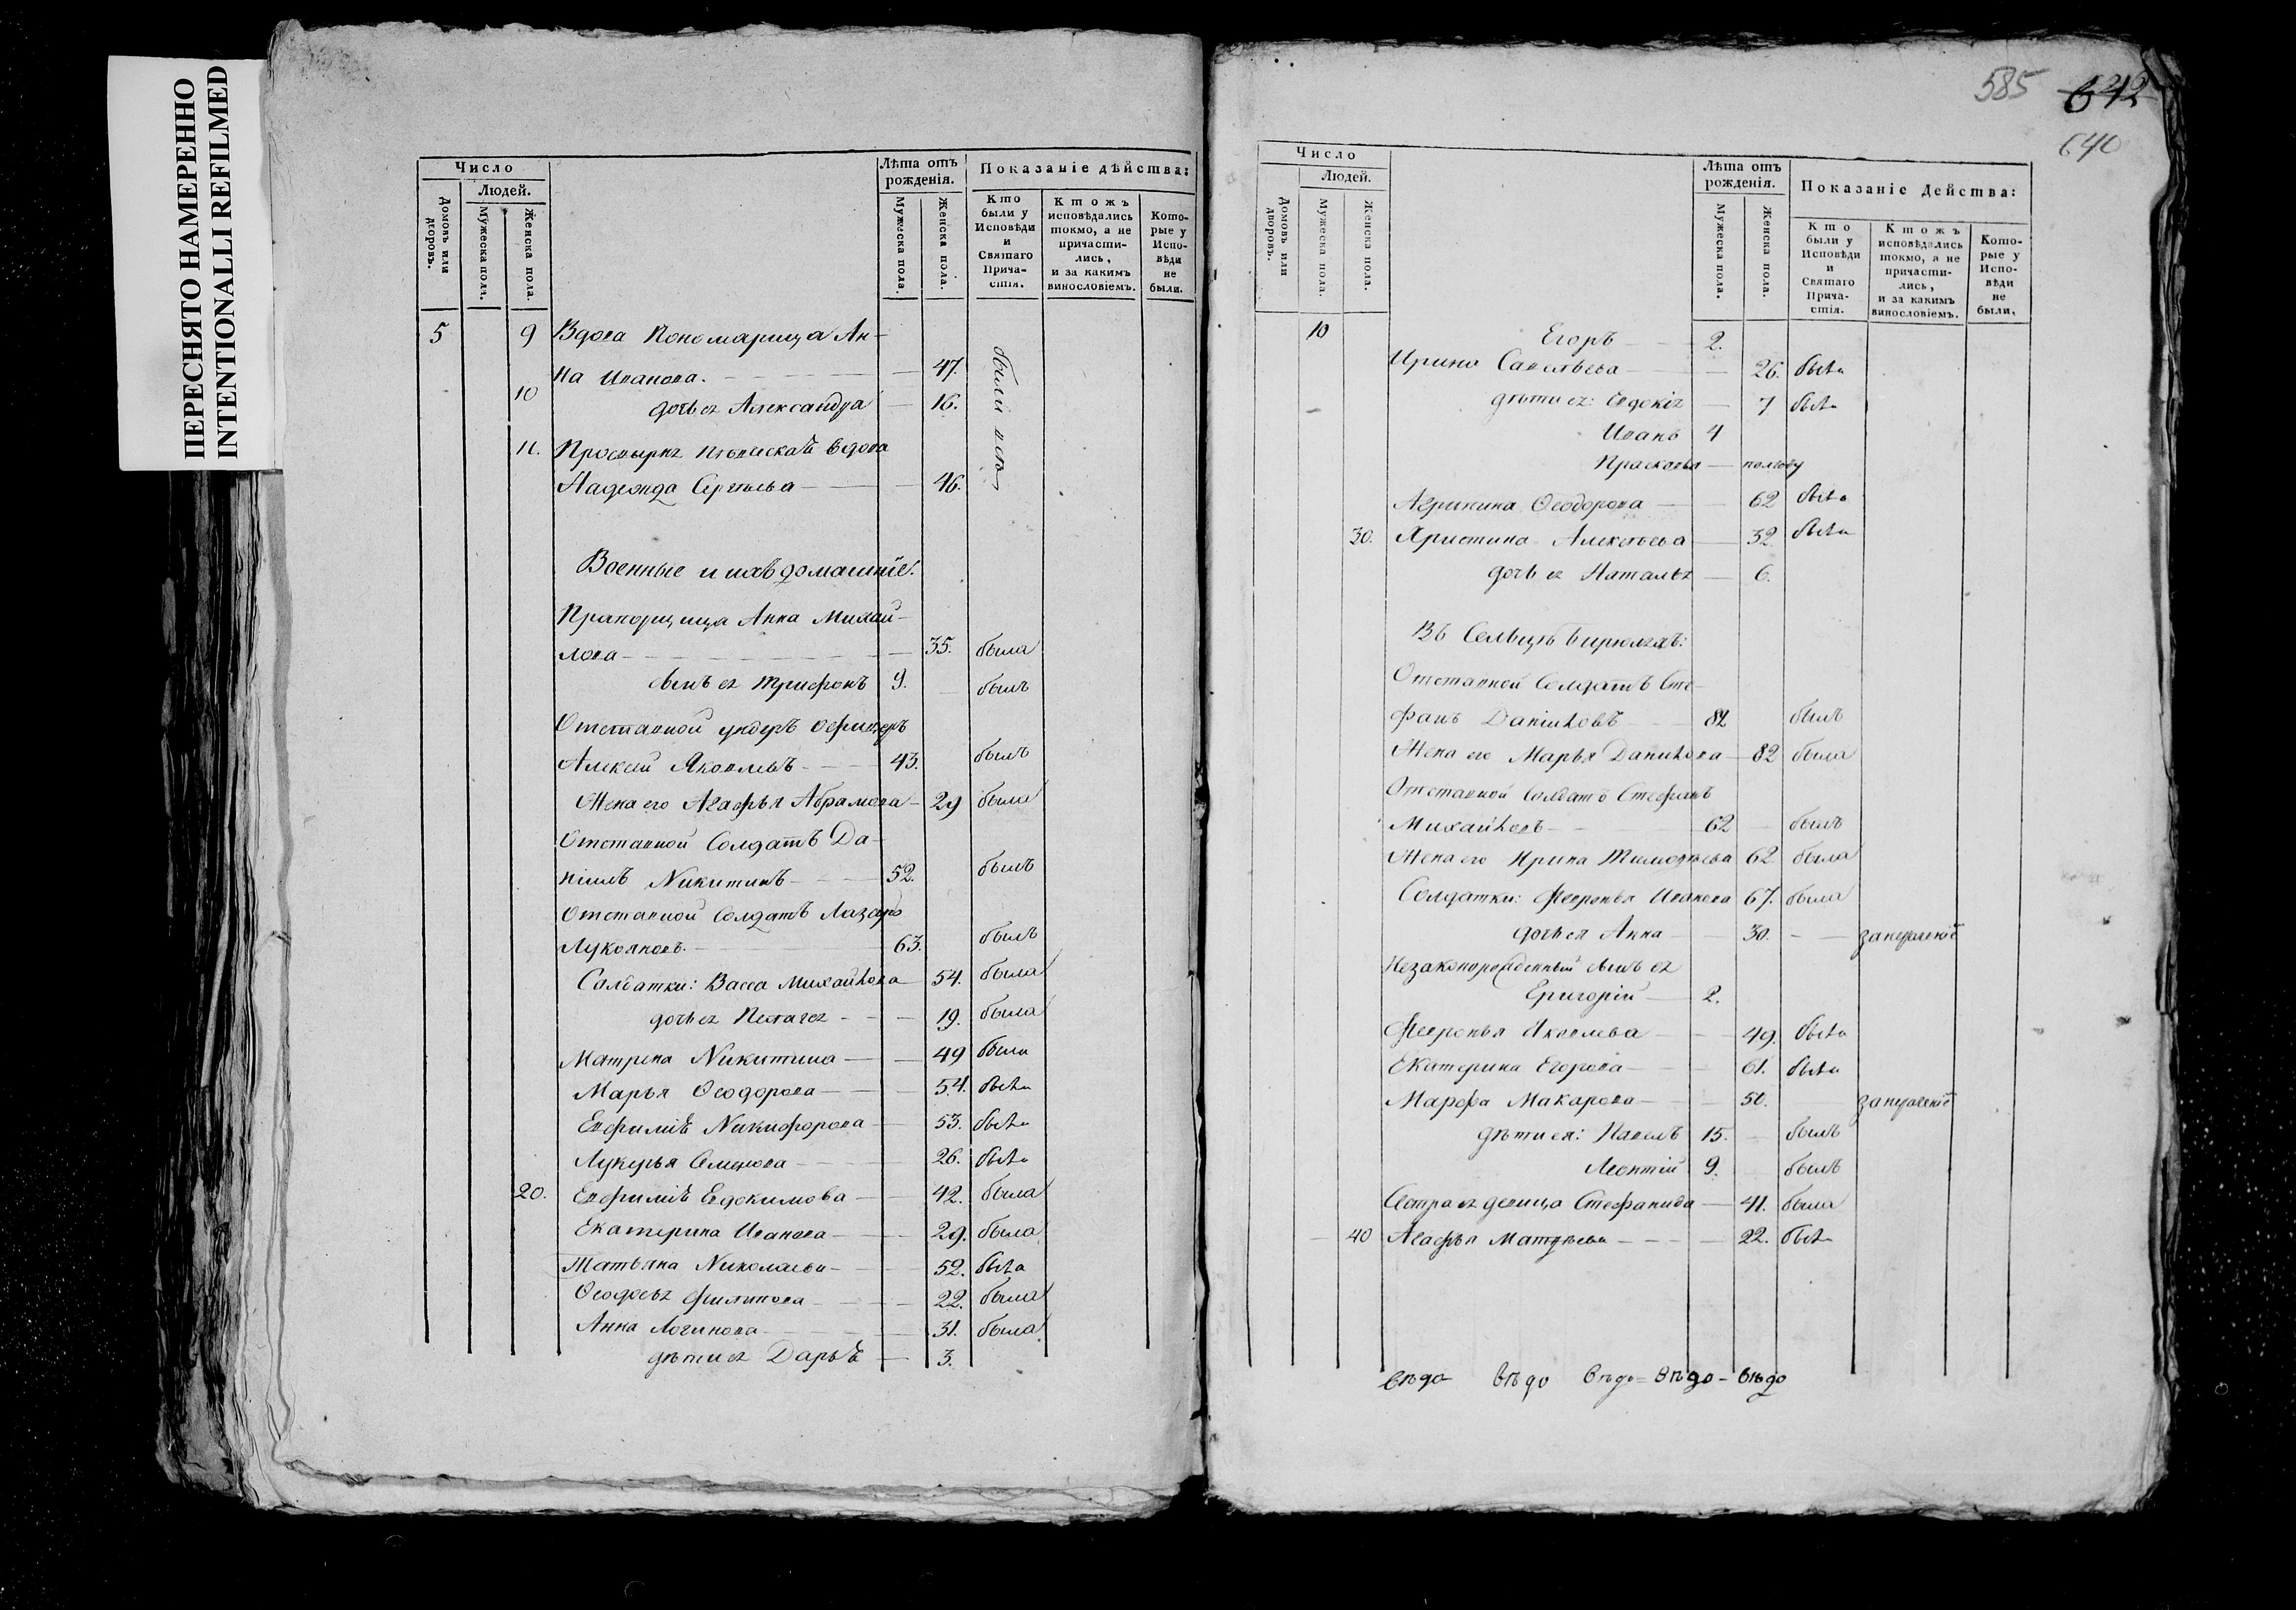 ПЕРЕСНЯТО НАМЕРЕННО
INTENTIONALLI REFILMED
Число
Людей.
Домовъ или дворовъ.
Мужеска пола.
Женска пола.
Лѣта отъ рожденія.
Мужеска пола.
Женска пола.
Показаніе дѣйства:
Кто были у Исповѣди и Святаго Прича-стія.
Ктожъ исповѣдались токмо, а не причасти-лись, и за какимъ винословіемъ.
Кото-рые у Испо-вѣди не были.
5 9 Вдова Пономарица Ан-
на Иванова. 47. были
10 дочь ея Александра 16.
11. Просвирня вдова
Надежда Сергѣева 46.
Военные и ихъ домашніе.
Прапорщица Анна Михай-
лова 35. была
сынъ ея Трифонъ 9. былъ
Отставной ундеръ офицеръ
Алексѣй Яковлевъ 43. былъ
Жена его Агафья Абрамова 29 была
Отставной Солдатъ Да-
ніилъ Никитинъ 52. былъ
Отставной Солдатъ Лазарь
Лукояновъ. 63. былъ
Солдатки: Васса Михайлова 54. была
дочь ея Пелагея 19. была
Матрена Никитина 49 была
Марья Ѳеодорова 54. была
Евфимія Никифорова 53. была
Лукерья Семенова 26. была
20. Евфимія Евдокимова 42. была
Екатерина Иванова 29. была
Татьяна Николаева 52. была
Ѳеодосья Филипова 22. была
Анна Логинова 31. была
дѣти ея Дарья 3.
585 642
640
Число
Людей.
Домовъ или дворовъ.
Мужеска пола.
Женска пола.
Лѣта отъ рожденія.
Мужеска пола.
Женска пола.
Показаніе Действа:
Кто были у Исповѣди и Святаго Прича-стія.
Ктожъ исповѣдались токмо, а не причасти-лись, и за какимъ винословіемъ.
Кото-рые у Испо-вѣди не были.
10 Егоръ 2.
Ирина Савельева 26. была
дѣти ея: Евдокія 7 была
Иванъ 4
Прасковья полгоду
Агрипина Ѳеодорова 62 была
30. Христина Алексѣева 32. была
дочь ея Наталья 6.
Въ Сельцѣ Бирюляхъ:
Отставной Солдатъ Сте-
фанъ Даниловъ 82 былъ
Жена его Марья Данилова 82 была
Отставной Солдатъ Стефанъ
Михайловъ 62 былъ
Жена его Ирина Тимофѣева 62 была
Солдатки: Февронья Иванова 67. была
дочь ея Анна 30. за нерадѣніе
Незаконорожденный сынъ ея
Григорій 2.
Февронья Яковлева 49. была
Екатерина Егорова 61. была
Марфа Макарова 50. за нерадѣніе
дѣти ея: Павелъ 15. былъ
Леонтій 9. былъ
Сестра ея девица Стефанида 41. была
40 Агафья Матвѣева 22. была